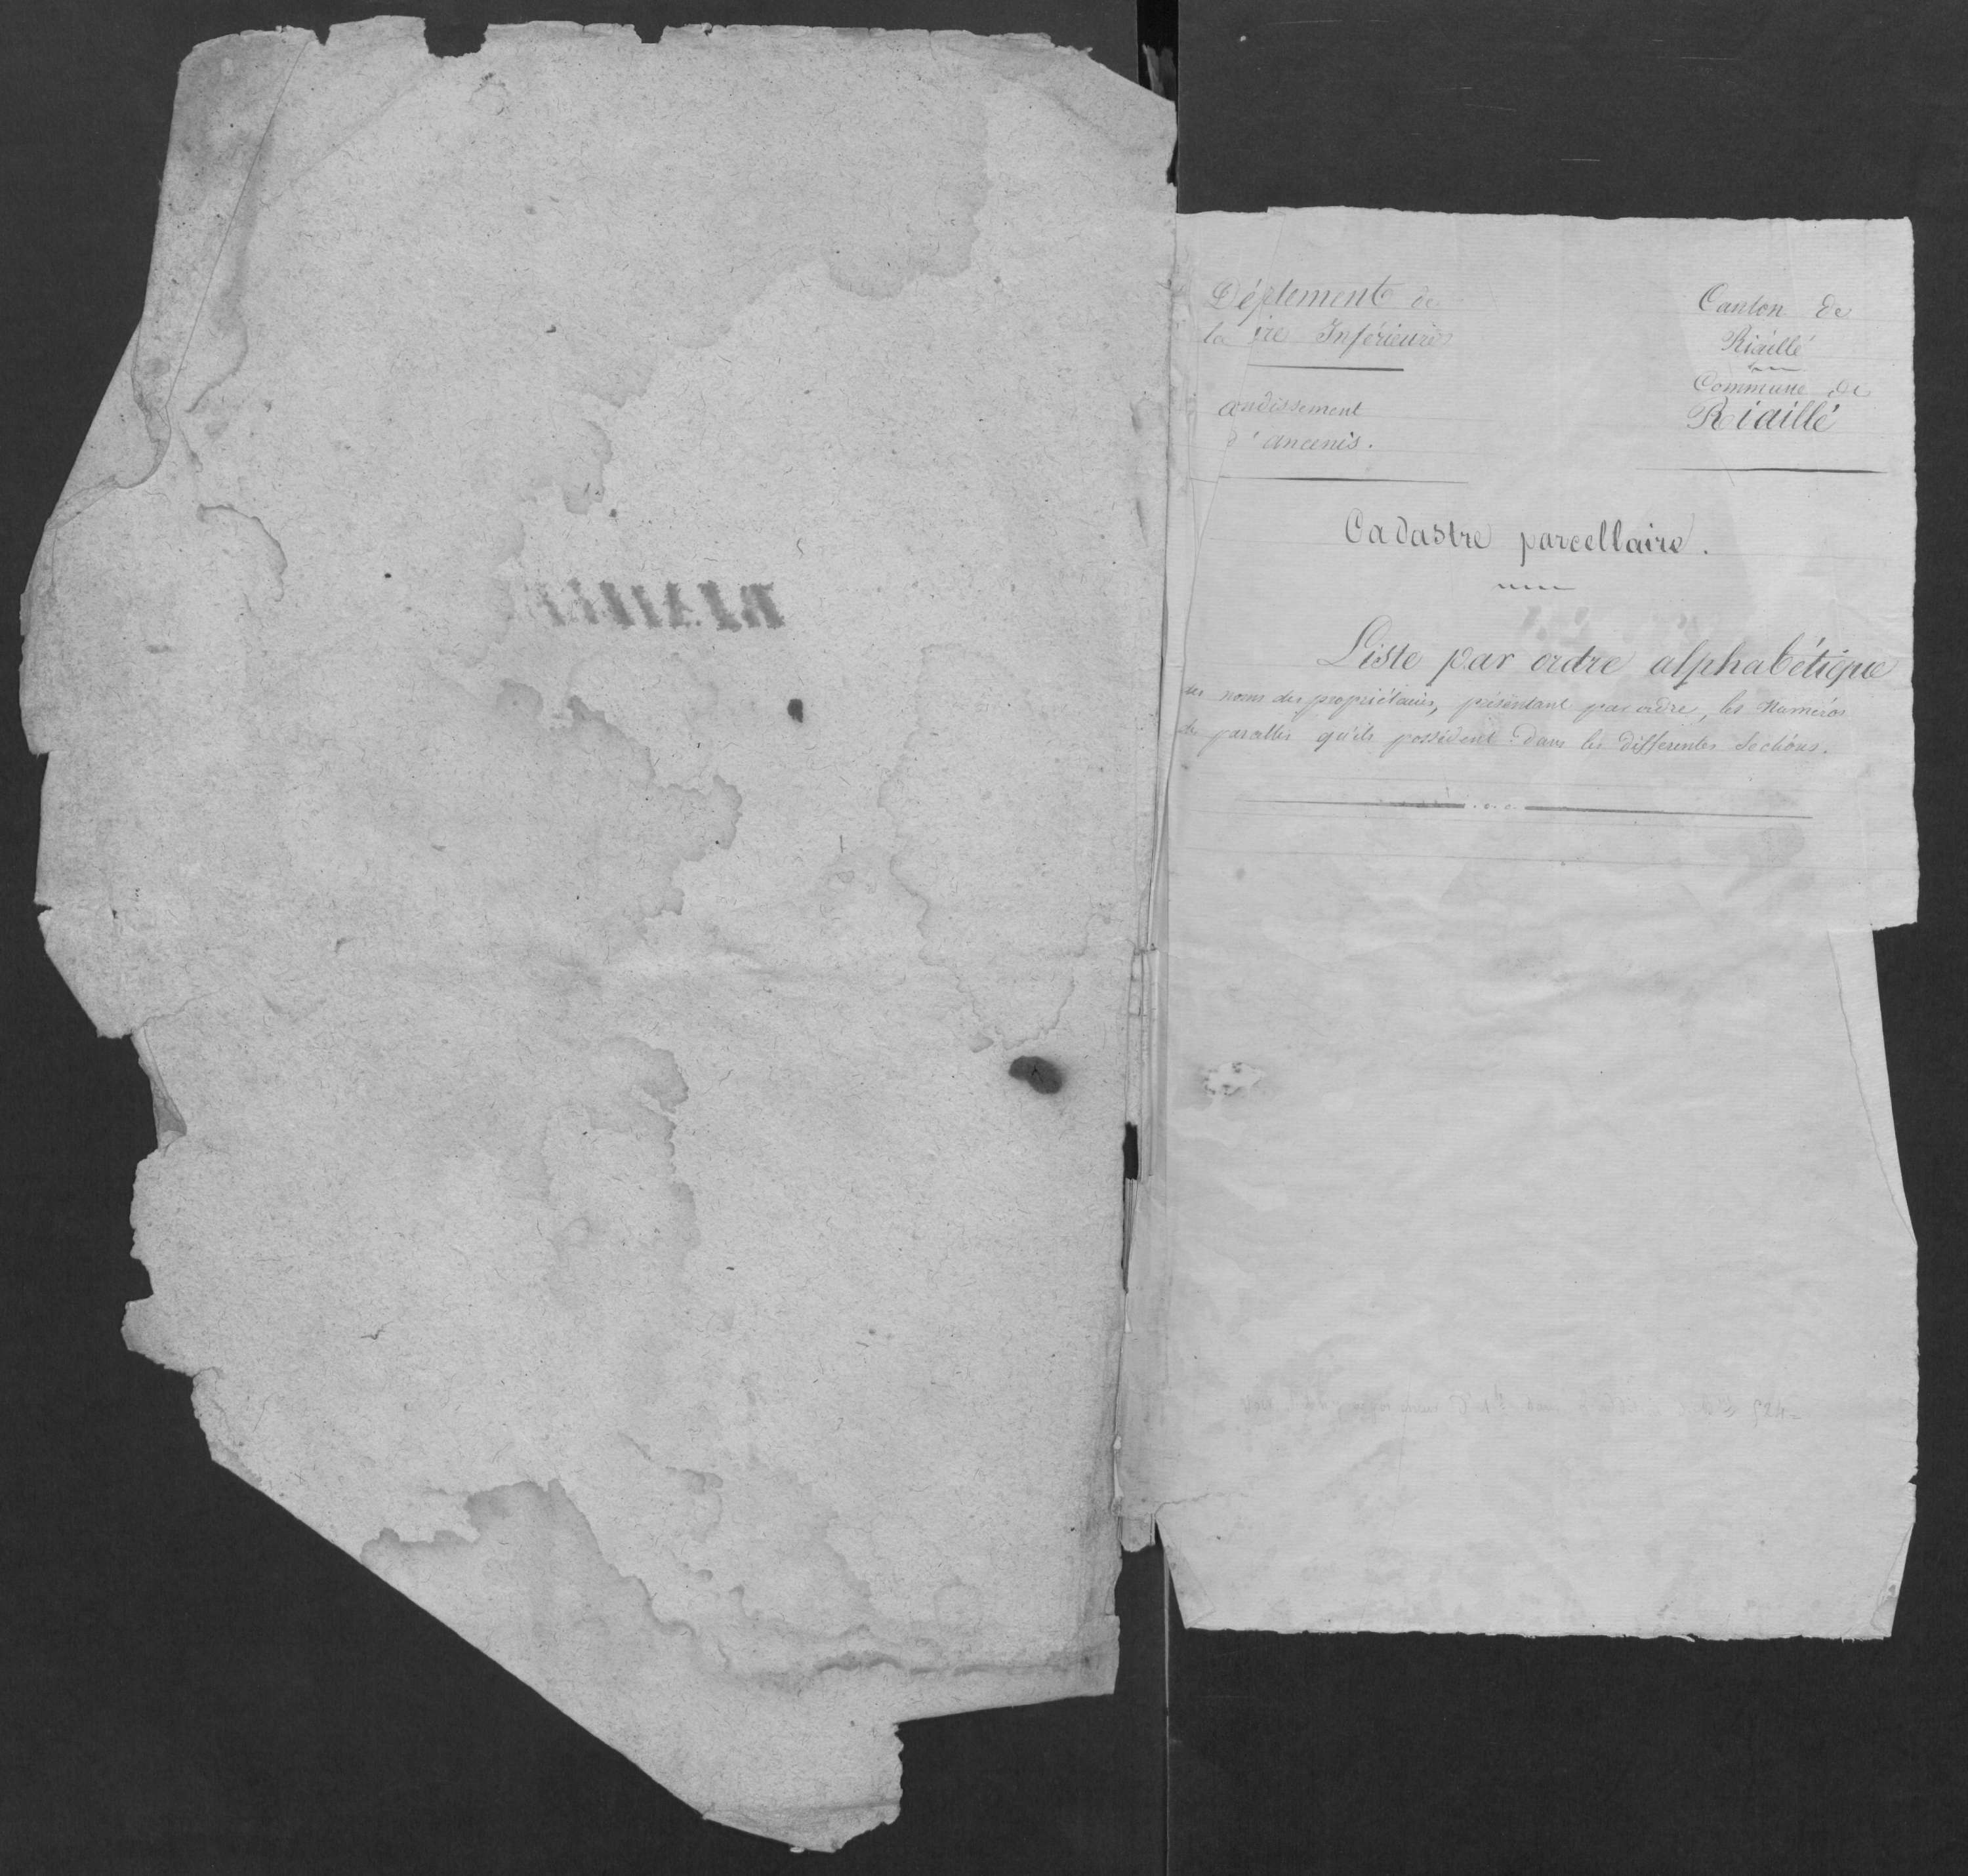 Déptement de
la ire Inférieure
andissement
d'ancenis.
Canton de
Riaillé
Commune de
Riaillé
Cadastre parcellaire.
Liste par ordre alphabétique
des noms des propriétaires, présentant par ordre, les Numéros
des parcelles qu'ils possèdent dans les differentes Sections.